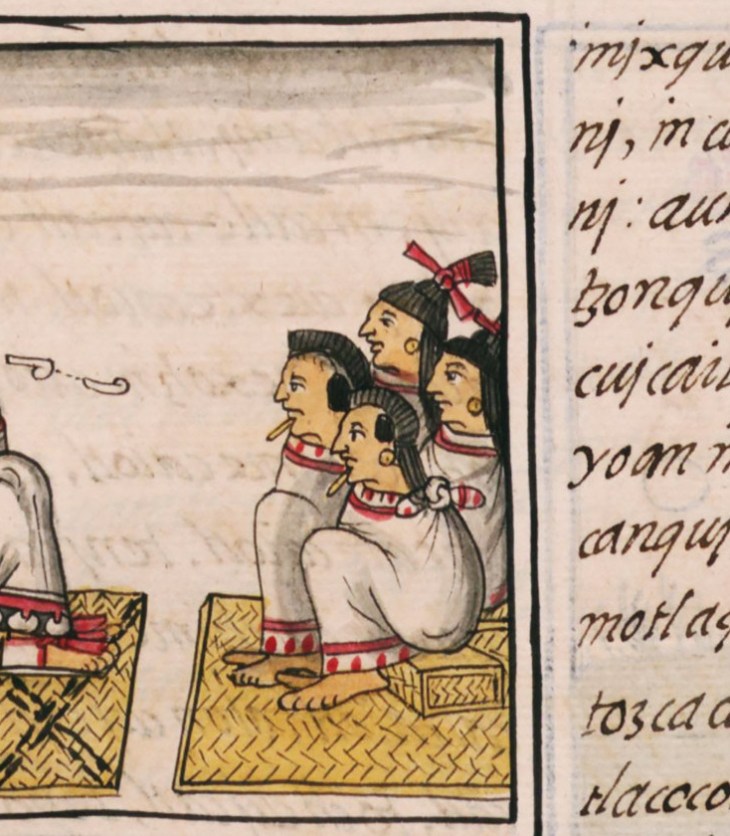 mjxqu
nj, in ca
nj: auh
tzonquj
cujcatl
yoan m
canquj
motlaq
tozcac
tlacoco